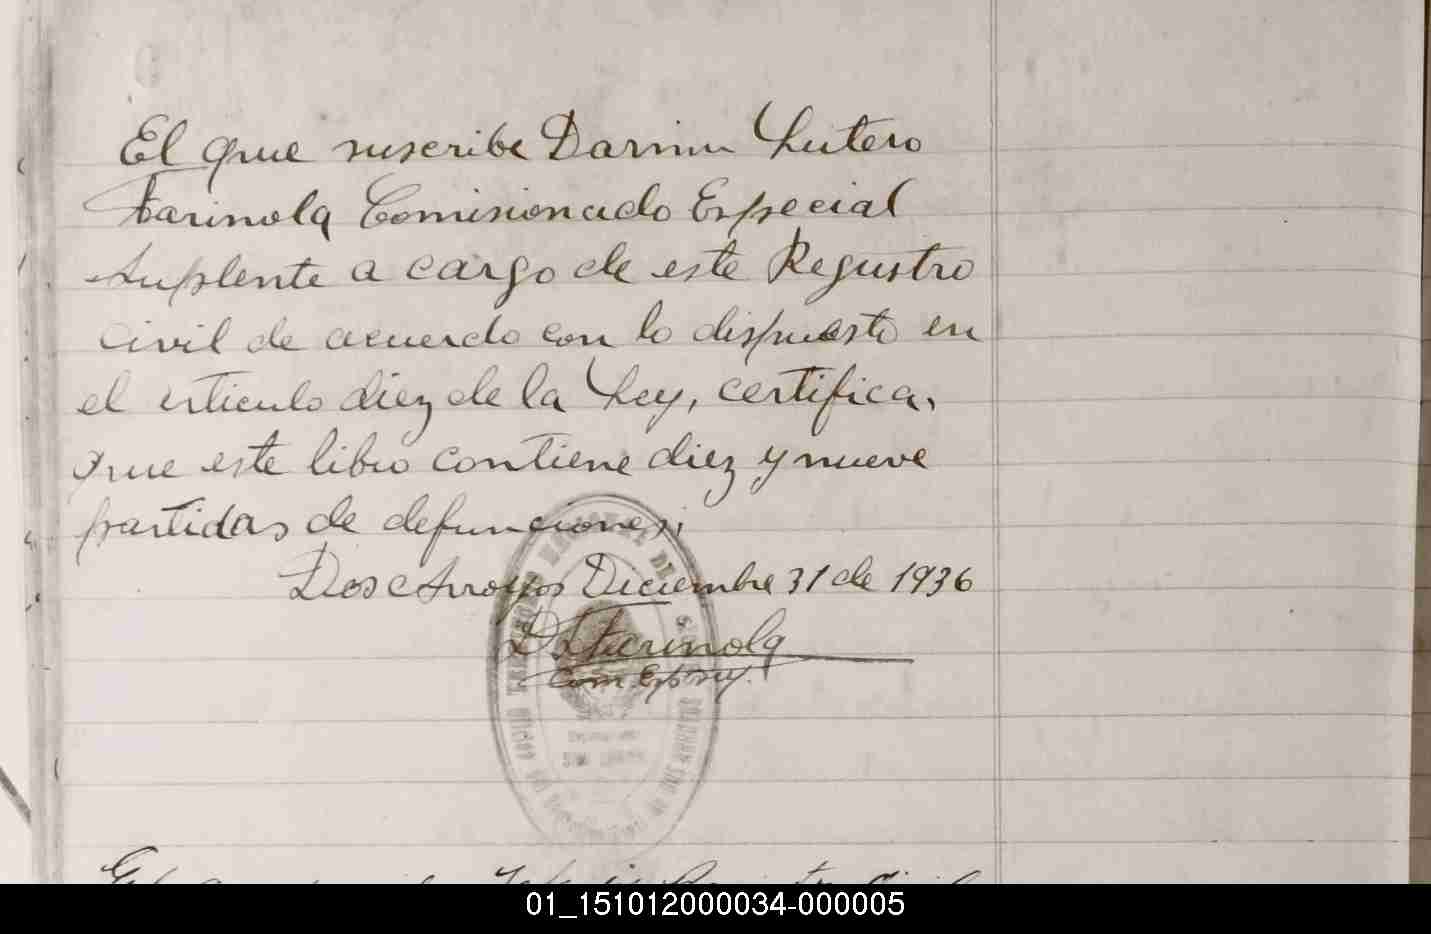 El que suscribe Darwin Lutero
Farinola Comisionado Especial
Suplente a cargo de este Registro
Civil de acuerdo con lo dispuesto en
el articulo diez de la Ley, certifica,
que este libro contiene diez y nueve
partidas de defunciones.
Dos Arroyos Diciembre 31 de 1936
D L Farinola
Com. Esp. sup.
01_151012000034-000005